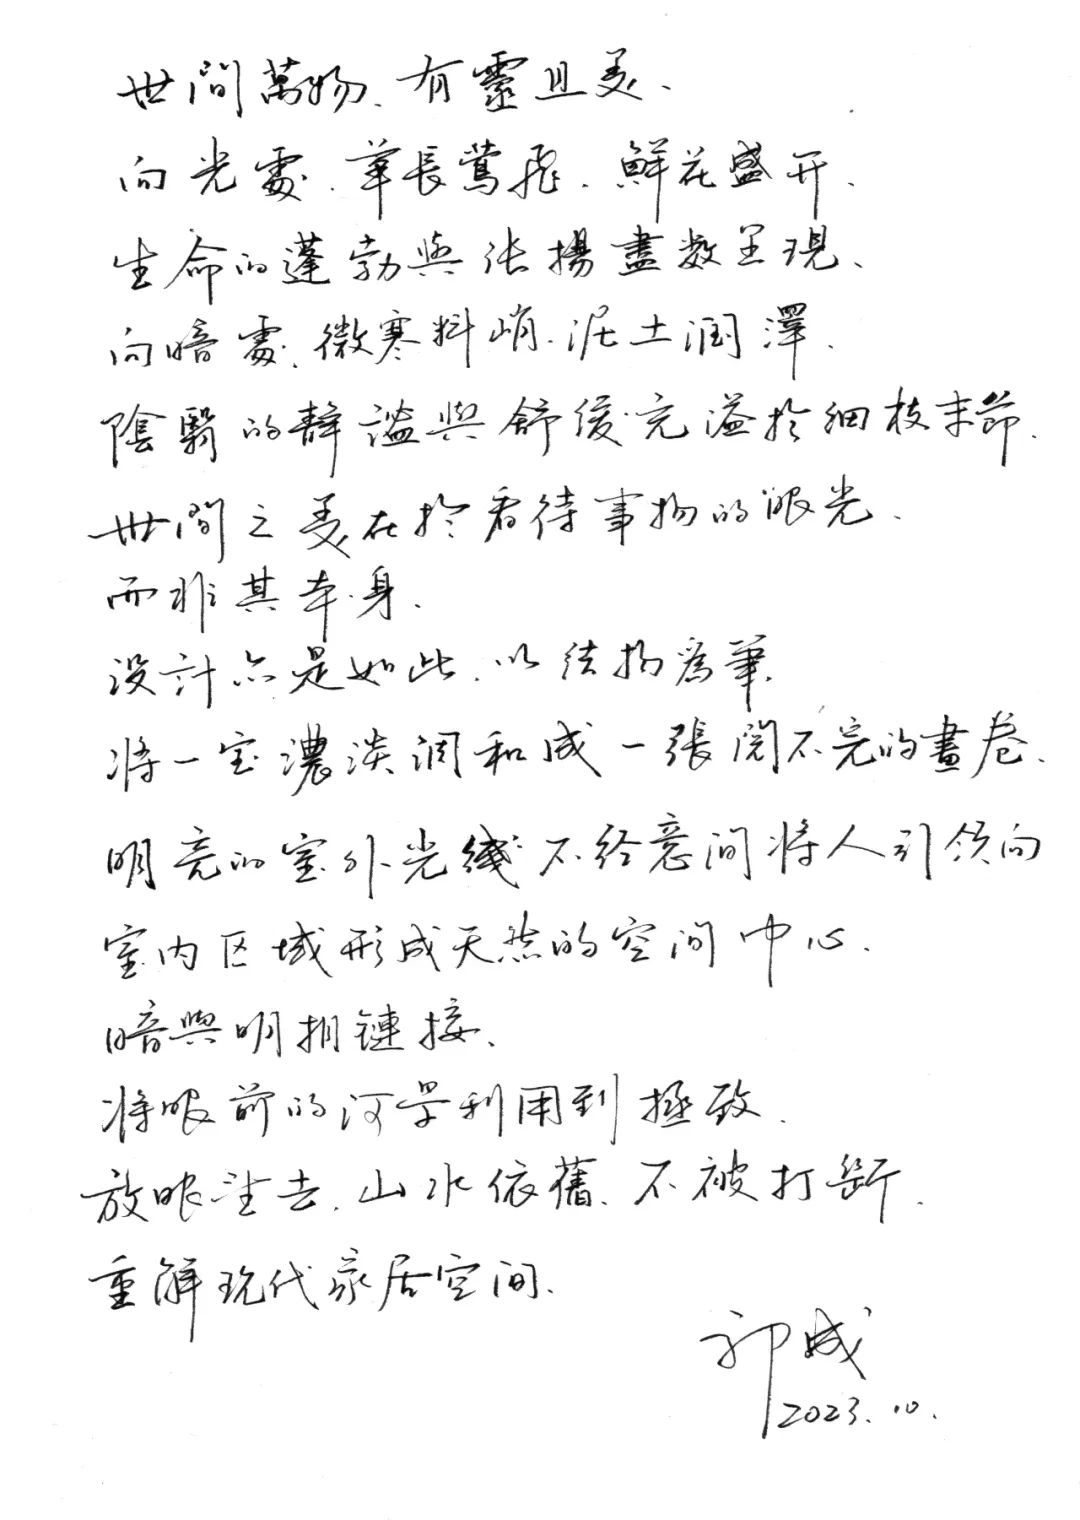 世間萬物、有靈且美、
向光處、草長鶯飛、鮮花盛开、
生命的蓬勃與张揚盡數呈現、
向暗處、微寒料峭、泥土润澤、
陰翳的靜謐與舒緩充溢扵细枝末節、
世間之美在扵看待事物的眼光、
而非其本身、
设計亦是如此、以结构為筆、
将一室濃淡调和成一張阅不完的畫卷、
明亮的室外光綫不经意间将人引领向
室内区域形成天然的空间中心、
暗與明相鏈接、
将眼前的河景利用到極致、
放眼望去、山水依舊、不被打断、
重解现代家居空间、
祁斌
2023.10.